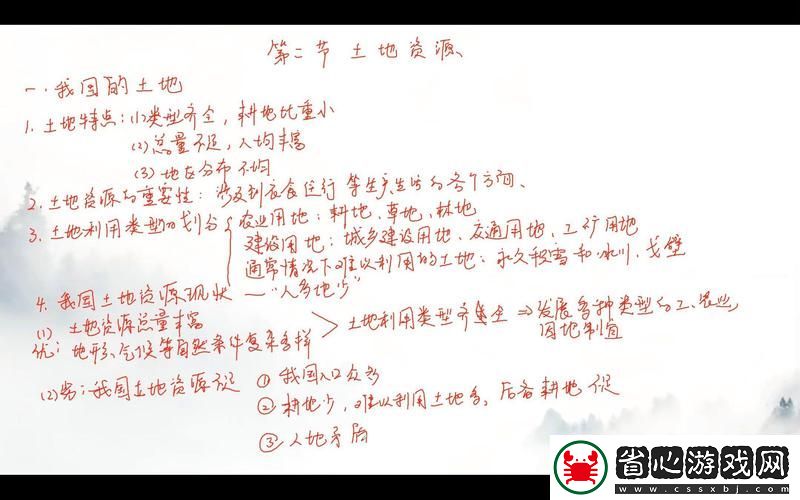 第二节 土地资源
一. 我国的土地
1. 土地特点: (1)类型齐全, 耕地比重小
(2)总量不足, 人均丰富
(3) 地区分布不均
2. 土地资源的重要性: 涉及到衣食住行 等生产生活的各个方面、
3. 土地利用类型的划分 农业用地: 耕地、草地、林地
建设用地: 城乡建设用地、交通用地、工矿用地
通常情况下难以利用的土地: 永久积雪和冰川、戈壁
4. 我国土地资源现状 — "人多地少"
(1) 土地资源总量丰富
优: 地形、气候等自然条件复杂多样
土地利用类型齐全 ⇒ 发展各种类型的工、农业,
因地制宜
(2)劣: 我国土地资源 ① 我国人口众多
② 耕地少, 难以利用土地多, 后备耕地不足
③ 人地矛盾
省心游戏网
www.cssxbj.com